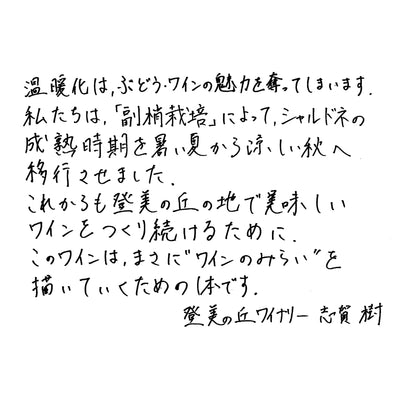 温暖化は,ぶどう・ワインの魅力を奪ってしまいます.
私たちは,「副梢栽培」によって,シャルドネの
成熟時期を暑い夏から涼しい秋へ
移行させました.
これからも登美の丘の地で美味しい
ワインをつくり続けるために.
このワインは,まさに"ワインのみらい"を
描いていくための1本です.
登美の丘ワイナリー 志賀 樹